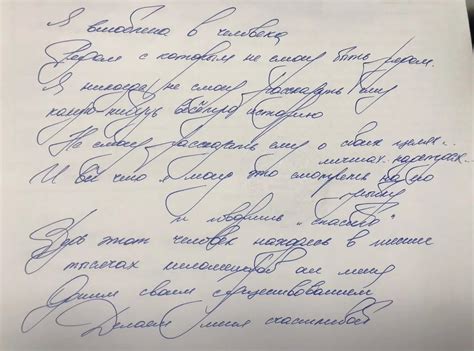 Я влюблена в человека,
Рядом с которым не смогу быть рядом.
Я никогда не смогу рассказать ему
какую-нибудь весёлую историю
Не смогу рассказать ему о своих целях..
личных
И всё что я могу это смотреть на его
и говорить "спасибо"
этот человек находясь в шести
тысячах километров от меня
Одним своим существованием
Делает меня счастливой